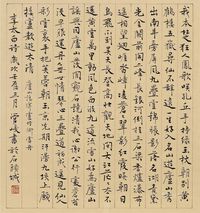 我本楚狂人鳳歌笑孔丘手持綠玉杖朝別黃
鶴樓五嶽尋仙不辭遠一生好入名山遊廬山秀
出南斗傍屏風九疊雲錦張影落明湖青黛
光金闕前開二峰長銀河倒掛三石梁香爐瀑布
遙相望迴崖沓嶂凌蒼蒼翠影紅霞映朝日
鳥飛不到吳天長登高壯觀天地間大江茫茫去不
還黃雲萬里動風色白波九道流雪山好為廬山
謠興因廬山發閒窺石鏡清我心謝公行處蒼苔
沒早服還丹無世情琴心三疊道初成遙見仙
人彩雲裏手把芙蓉朝玉京先期汗漫九垓上願
接盧敖遊太清 廬山謠寄盧侍御虛舟
李太白詩 歲次壬 月 書於石頭城